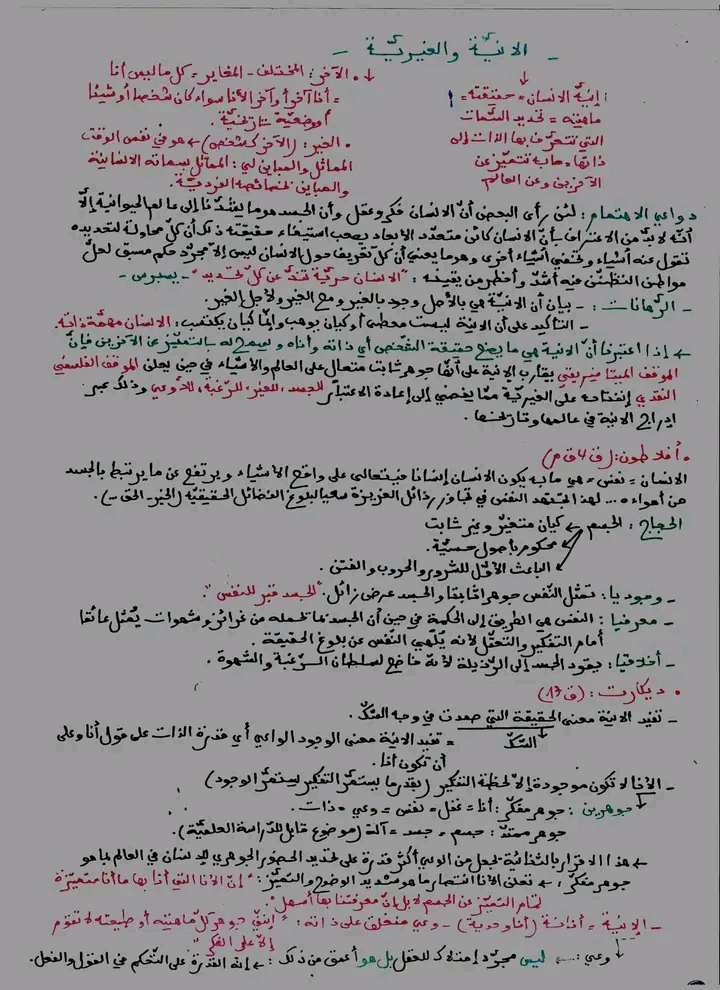 ـ الانيّة والغيريّة ـ
إنيّة الانسان = حقيقته =
ماهيته = تحديد السّمات
التي تتعرّف بها الذات إلى
ذاتها = مابه تتميّز عن
الآخرين وعن العالم
• الآخر: المختلف - المغاير = كل ما ليس أنا
= أنا آخر أو آخر الأنا سواء كان شخصا أو شيئا
أو وضعيّة تاريخيّة.
• الغير: (الآخر كشخص) ← هو في نفس الوقت
المماثل والمباين لي: المماثل بسماته الانسانية
والمباين بخصائصه الفرديّة.
دواعي الاهتمام: لئن رأى البعض أنّ الانسان فكر وعقل وأن الجسد هو ما يشدّنا إلى عالم الحيوانية إلاّ
أنّه لابدّ من الاعتراف بأنّ الانسان كائن متعدّد الأبعاد يصعب استيفاء حقيقته ذلك أنّ كلّ محاولة لتحديده
تقول عنه أشياء وتخفي أشياء أخرى وهو ما يعني أن كلّ تعريف حول الانسان ليس إلاّ مجرّد حكم مسبق لعلّ
مواطن التظنّن فيه أشدّ وأخطر من يقينه: "الانسان حريّة تندّ عن كلّ تحديد" - يسبرس -
ـ الرّهانات: - بيان أن الانية هي بالأصل وجود بالغير ومع الغير ولأجل الغير.
- التأكيد على أن الانية ليست معطى أو كيان يوهب وإنّما كيان يكتسب: الانسان مهمّة ذاته.
← إذا اعتبرنا أنّ الانية هي ما يصنع حقيقة الشخص أي ذاته وأناه ويسمح له بالتميّز عن الآخرين فإنّ
الموقف الميتافيزيقي يقارب الإنية على أنّها جوهر ثابت متعال على العالم والأشياء في حين يعلن الموقف الفلسفي
النقدي إنفتاحه على الغيريّة ممّا يفضي إلى إعادة الاعتبار للجسد، للغير، للرّغبة، للاّوعي وذلك عبر
إدراج الانية في عالمها وتاريخها.
• أفلاطون: (ق 4 ق م)
الانسان = نفس = هي ما به يكون الانسان إنسانا فيتعالى على واقع الأشياء ويرتفع عن ما يرتبط بالجسد
من أهواء... لهذا تجتهد النفس في تجاوز رذائل الغريزة سعيا لبلوغ الفضائل الحقيقيّة (الخير - الحق -).
الحجاج: الجسم ← كيان متغيّر وغير ثابت
← محكوم بأصول حسيّة.
← الباعث الأوّل للشرور والحروب والفتن.
ـ وجوديا: تمثّل النّفس جوهرا ثابتا والجسد عرض زائل. "الجسد قبر للنفس".
ـ معرفيا: النفس هي الطريق إلى الحكمة في حين أن الجسد بما تحمله من غرائز وشهوات يُمثّل عائقا
أمام التفكير والتعقّل لأنه يُلهي النفس عن بلوغ الحقيقة.
ـ أخلاقيا: يقود الجسد إلى الرّذيلة لأنه خاضع لسلطان الرّغبة والشهوة.
• ديكارت: (ق 17)
ـ تفيد الانية معنى الحقيقة التي صمدت في وجه الشكّ.
الشكّ = تفيد الانية معنى الوجود الواعي أي قدرة الذات على قول أنا وعلى
أن تكون أنا.
ـ الأنا لا تكون موجودة إلا لحظة التفكير (بقدر ما يستمرّ التفكير يستمرّ الوجود)
← جوهرين: جوهر مفكّر: أنا = عقل = نفس = وعي = ذات.
جوهر ممتدّ: جسم = جسد = آلة (موضوع قابل للدّراسة العلميّة).
← هذا الاقرار بالثنائية يجعل من الوعي أكثر قدرة على تحديد الحضور الجوهري للإنسان في العالم بما هو
جوهر مفكّر، ← تعلن الأنا انتصارها وتشديد الوضوح والتميّز: "إنّ الأنا التي أنا بها ما أنا متميّزة
تمام التميّز عن الجسم لا بل إنّ معرفتنا بها أسهل".
ـ الإنية = أنانة (أنا وحدية) - وعي منغلق على ذاته: "إنّي جوهر كلّ ماهيته أو طبيعته لا تقوم
إلاّ على الفكر"
← وعي: ... ليس مجرّد إمتلاك للعقل بل هو أعمق من ذلك: ← إنّه القدرة على التحكم في القول والفعل.